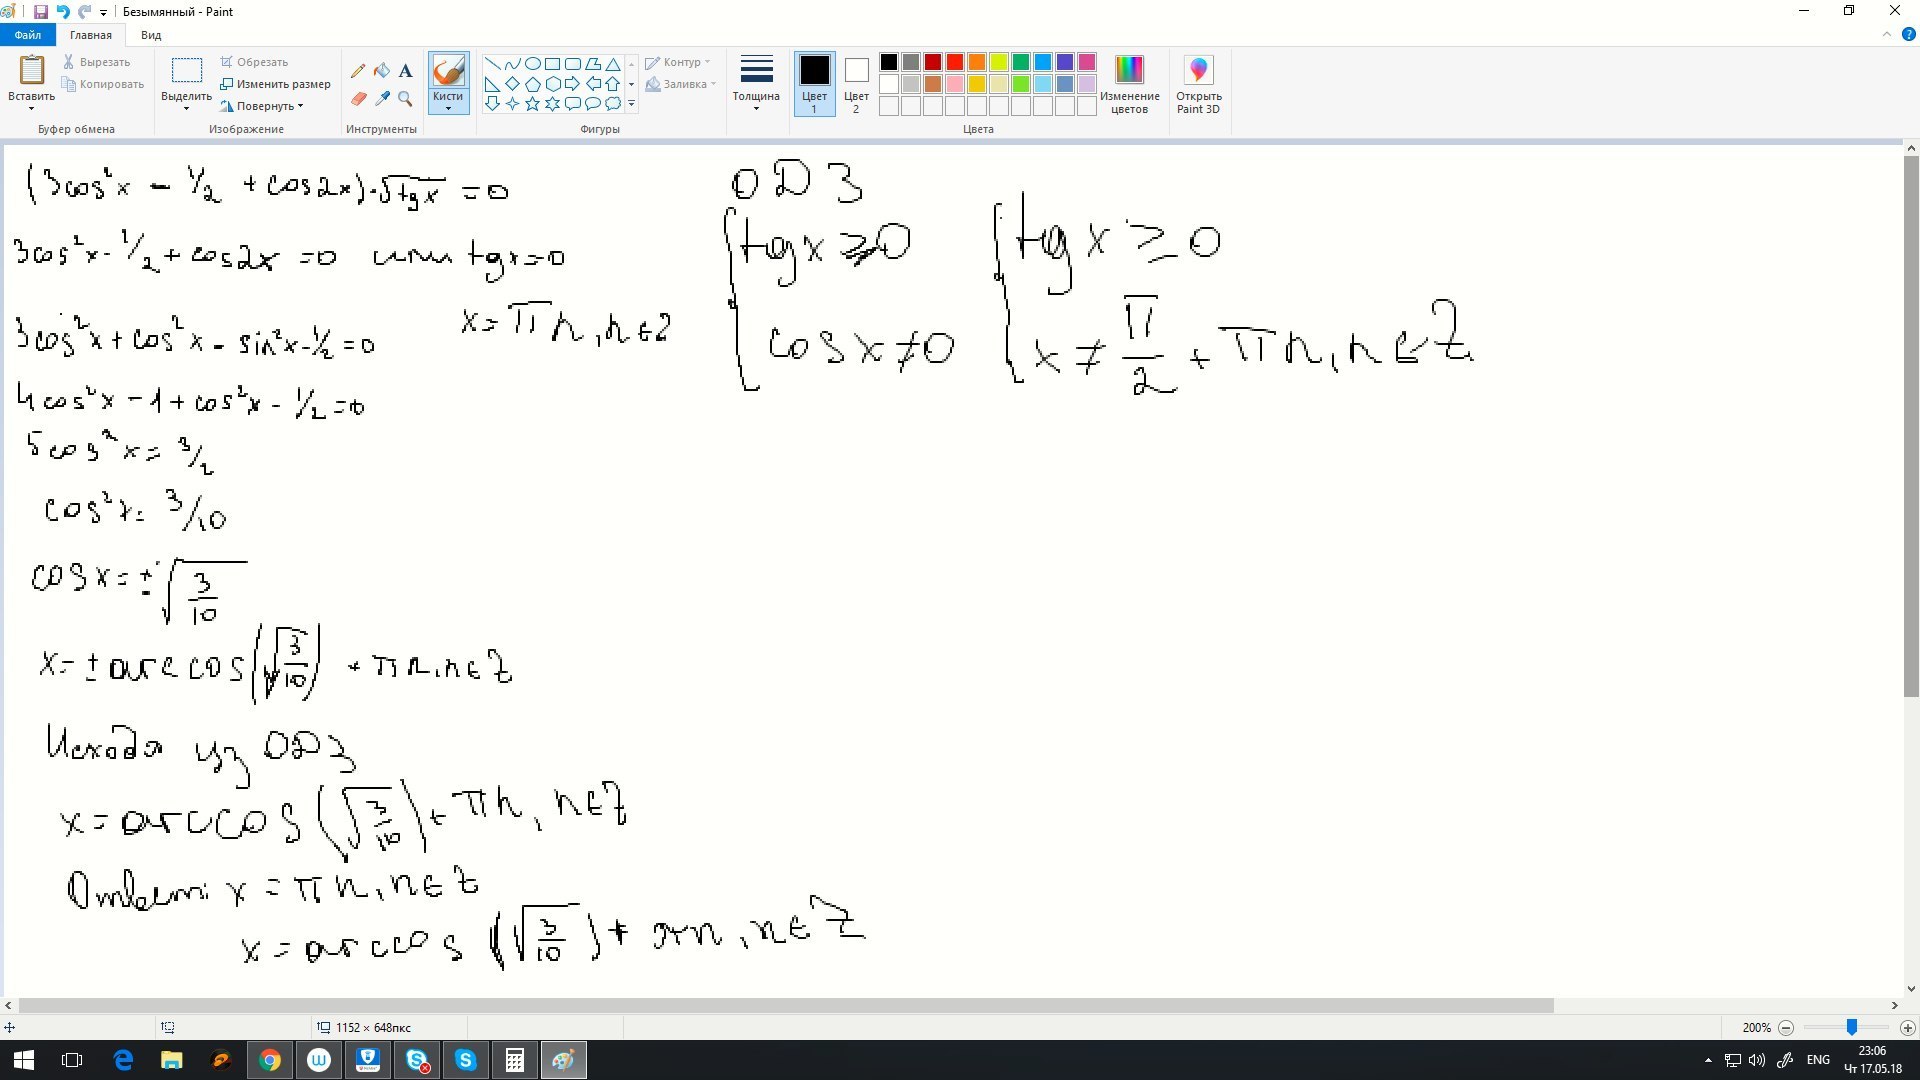 Безымянный - Paint
Файл Главная Вид
Вставить
Вырезать
Копировать
Буфер обмена
Выделить
Обрезать
Изменить размер
Повернуть
Изображение
A
Инструменты
Кисти
Контур
Заливка
Фигуры
Толщина
Цвет 1
Цвет 2
Изменение цветов
Цвета
Открыть Paint 3D
(3cos²x - 1/2 + cos2x)·√tgx = 0
3cos²x - 1/2 + cos2x = 0 или tgx = 0
x = πn, n ∈ Z
3cos²x + cos²x - sin²x - 1/2 = 0
4cos²x - 1 + cos²x - 1/2 = 0
5cos²x = 3/2
cos²x = 3/10
cosx = ±√(3/10)
x = ± arccos(√(3/10)) + πn, n ∈ Z
Исходя из ОДЗ
x = arccos(√(3/10)) + πn, n ∈ Z
Ответ: x = πn, n ∈ Z
x = arccos(√(3/10)) + πn, n ∈ Z
ОДЗ
{tgx ≥ 0
cosx ≠ 0
{tgx ≥ 0
x ≠ π/2 + πn, n ∈ Z
1152 × 648пкс
200%
ENG
23:06
Чт 17.05.18